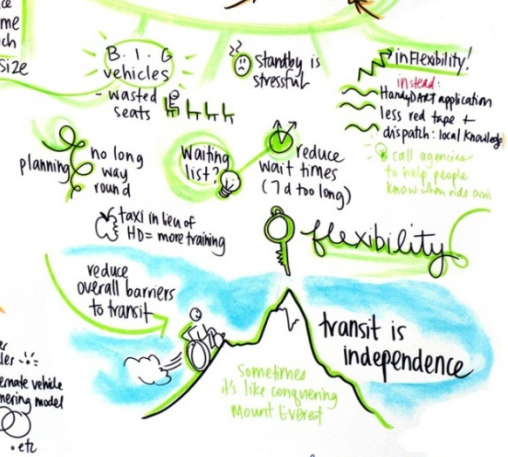 me
ch
size
B.I.G
vehicles
- wasted
seats
standby is
stressful
inFlexibility!
instead:
HandyDART application
less red tape +
dispatch: local knowledge
call agencies
to help people
know when ride
planning
no long
way
round
Waiting
list?
reduce
wait times
(7d too long)
taxi in lieu of
HD = more training
flexibility
reduce
overall barriers
to transit
transit is
independence
Sometimes
it's like conquering
Mount Everest
ernate vehicle
model
• etc